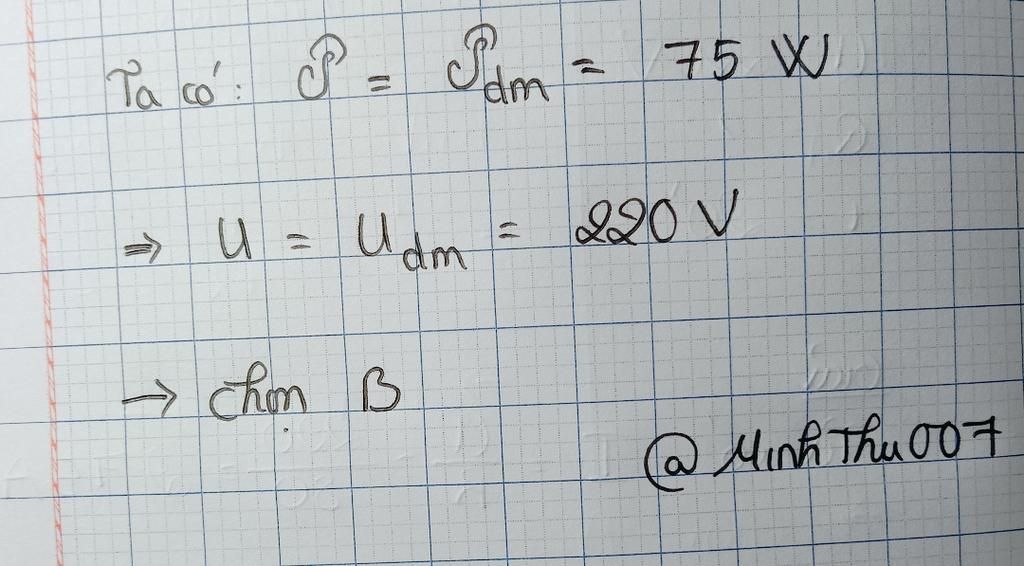 Ta có: P = Pdm = 75 W
⇒ U = Udm = 220 V
→ chọn B
@MinhThu007